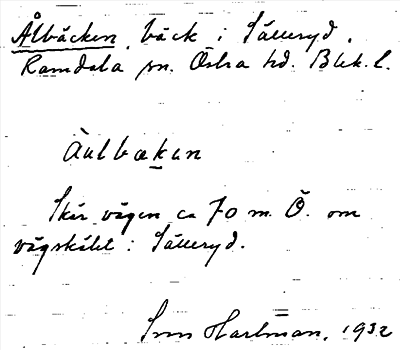 Ålbäcken, bäck i Sälleryd.
Ramdala sn. Östra hd. Blek. l.
Àulbækun
Skär vägen ca 70 m. Ö. om
vägskälet i Sälleryd.
Sven Hartman, 1932